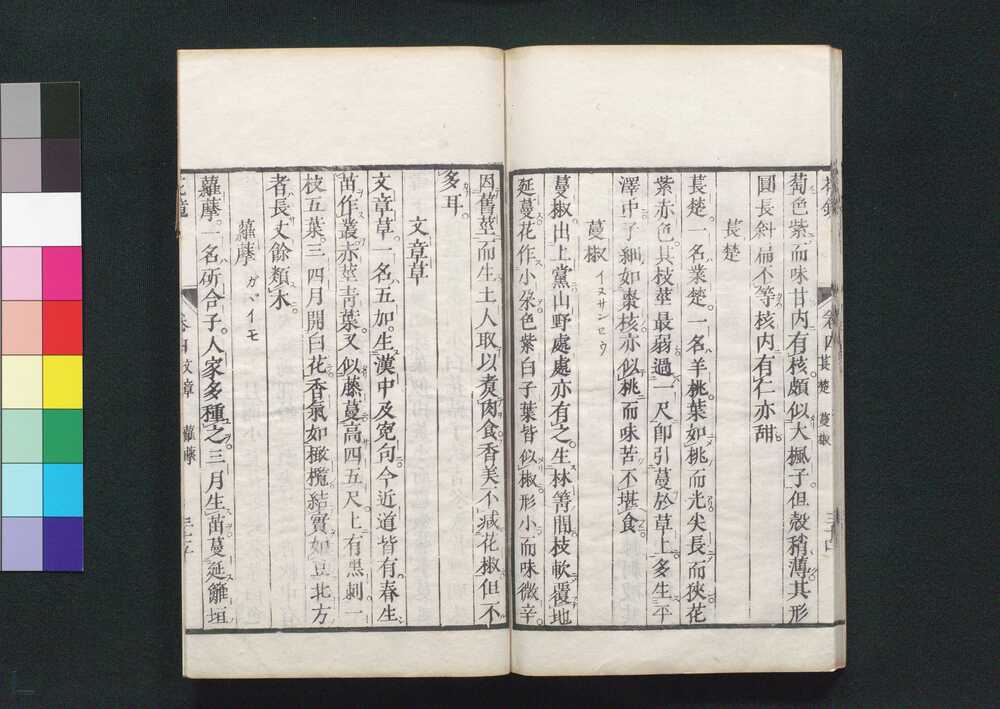 蔔色紫而味甘内有核頗似大楓子但殻稍薄其形
圓長斜扁不等核内有仁亦甜
萇楚
萇楚。一名業楚。一名羊桃。葉如桃而光尖長而狹花
紫赤色。其枝莖最弱過一尺卽引蔓於草上。多生平
澤中子細如棗核亦似桃而味苦不堪食。
蔓椒 イヌサンセウ
蔓椒出上黨山野處處亦有之。生林箐間。枝軟覆地
延蔓花作小朶色紫白子葉皆似椒形小而味微辛。
因舊莖而生土人取以煮肉食香美不減花椒但不
多耳。
文章草
文章草。一名五加。生漢中及寃句今近道皆有。春生
苗作叢。赤莖青葉。又似藤蔓高四五尺。上有黒刺一
枝五葉。三四月開白花香氣如橄欖結實如豆北方
者長丈餘類木。
蘿藦 ガヾイモ
蘿藦。一名斫合子。人家多種之。三月生苗蔓延籬垣
卷四 萇楚 蔓椒 三十四
卷四 文章 蘿藦